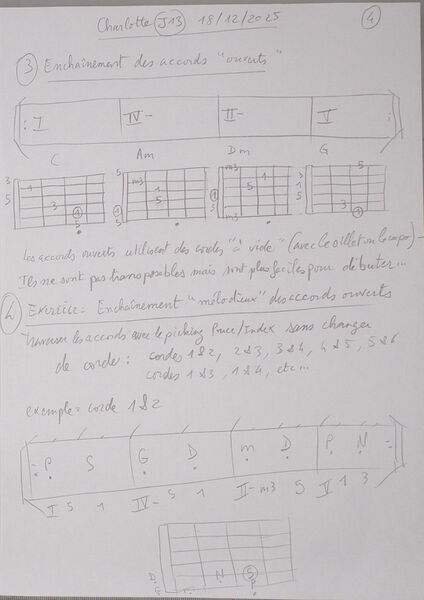 Charlotte J13 18/12/2025 4
3 Enchaînement des accords "ouverts"
I IV- II- V
C Am Dm G
Les accords ouverts utilisent des cordes "à vide" (avec le sillet ou le capo) -
Ils ne sont pas transposables mais sont plus faciles pour débuter...
Exercice: Enchaînement "mélodieux" des accords ouverts
Traverser les accords avec le picking Pouce/Index sans changer
de corde: cordes 1&2, 2&3, 3&4, 4&5, 5&6
cordes 1&3, 1&4, etc...
exemple: corde 1&2
P S G D m D P N
I 5 1 IV- 5 1 II- m3 5 V 1 3
N 5
P